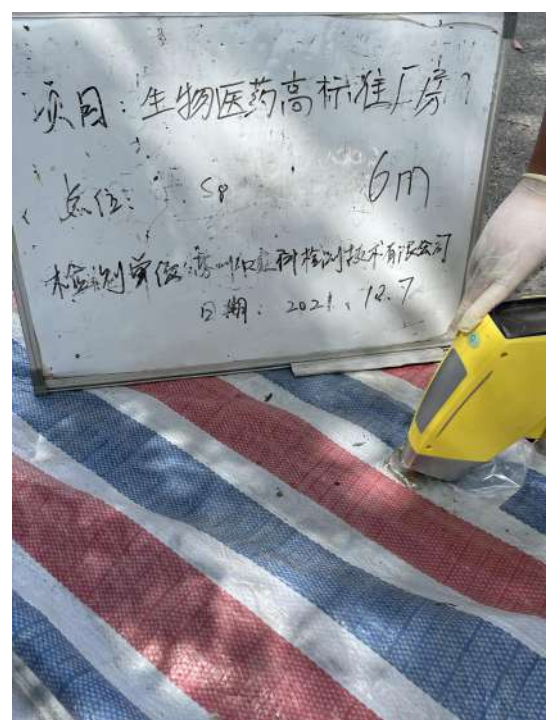 项目：生物医药高标准厂房
点位： S8 6m
检测单位：科检测技术有限公司
日期：2021.12.7